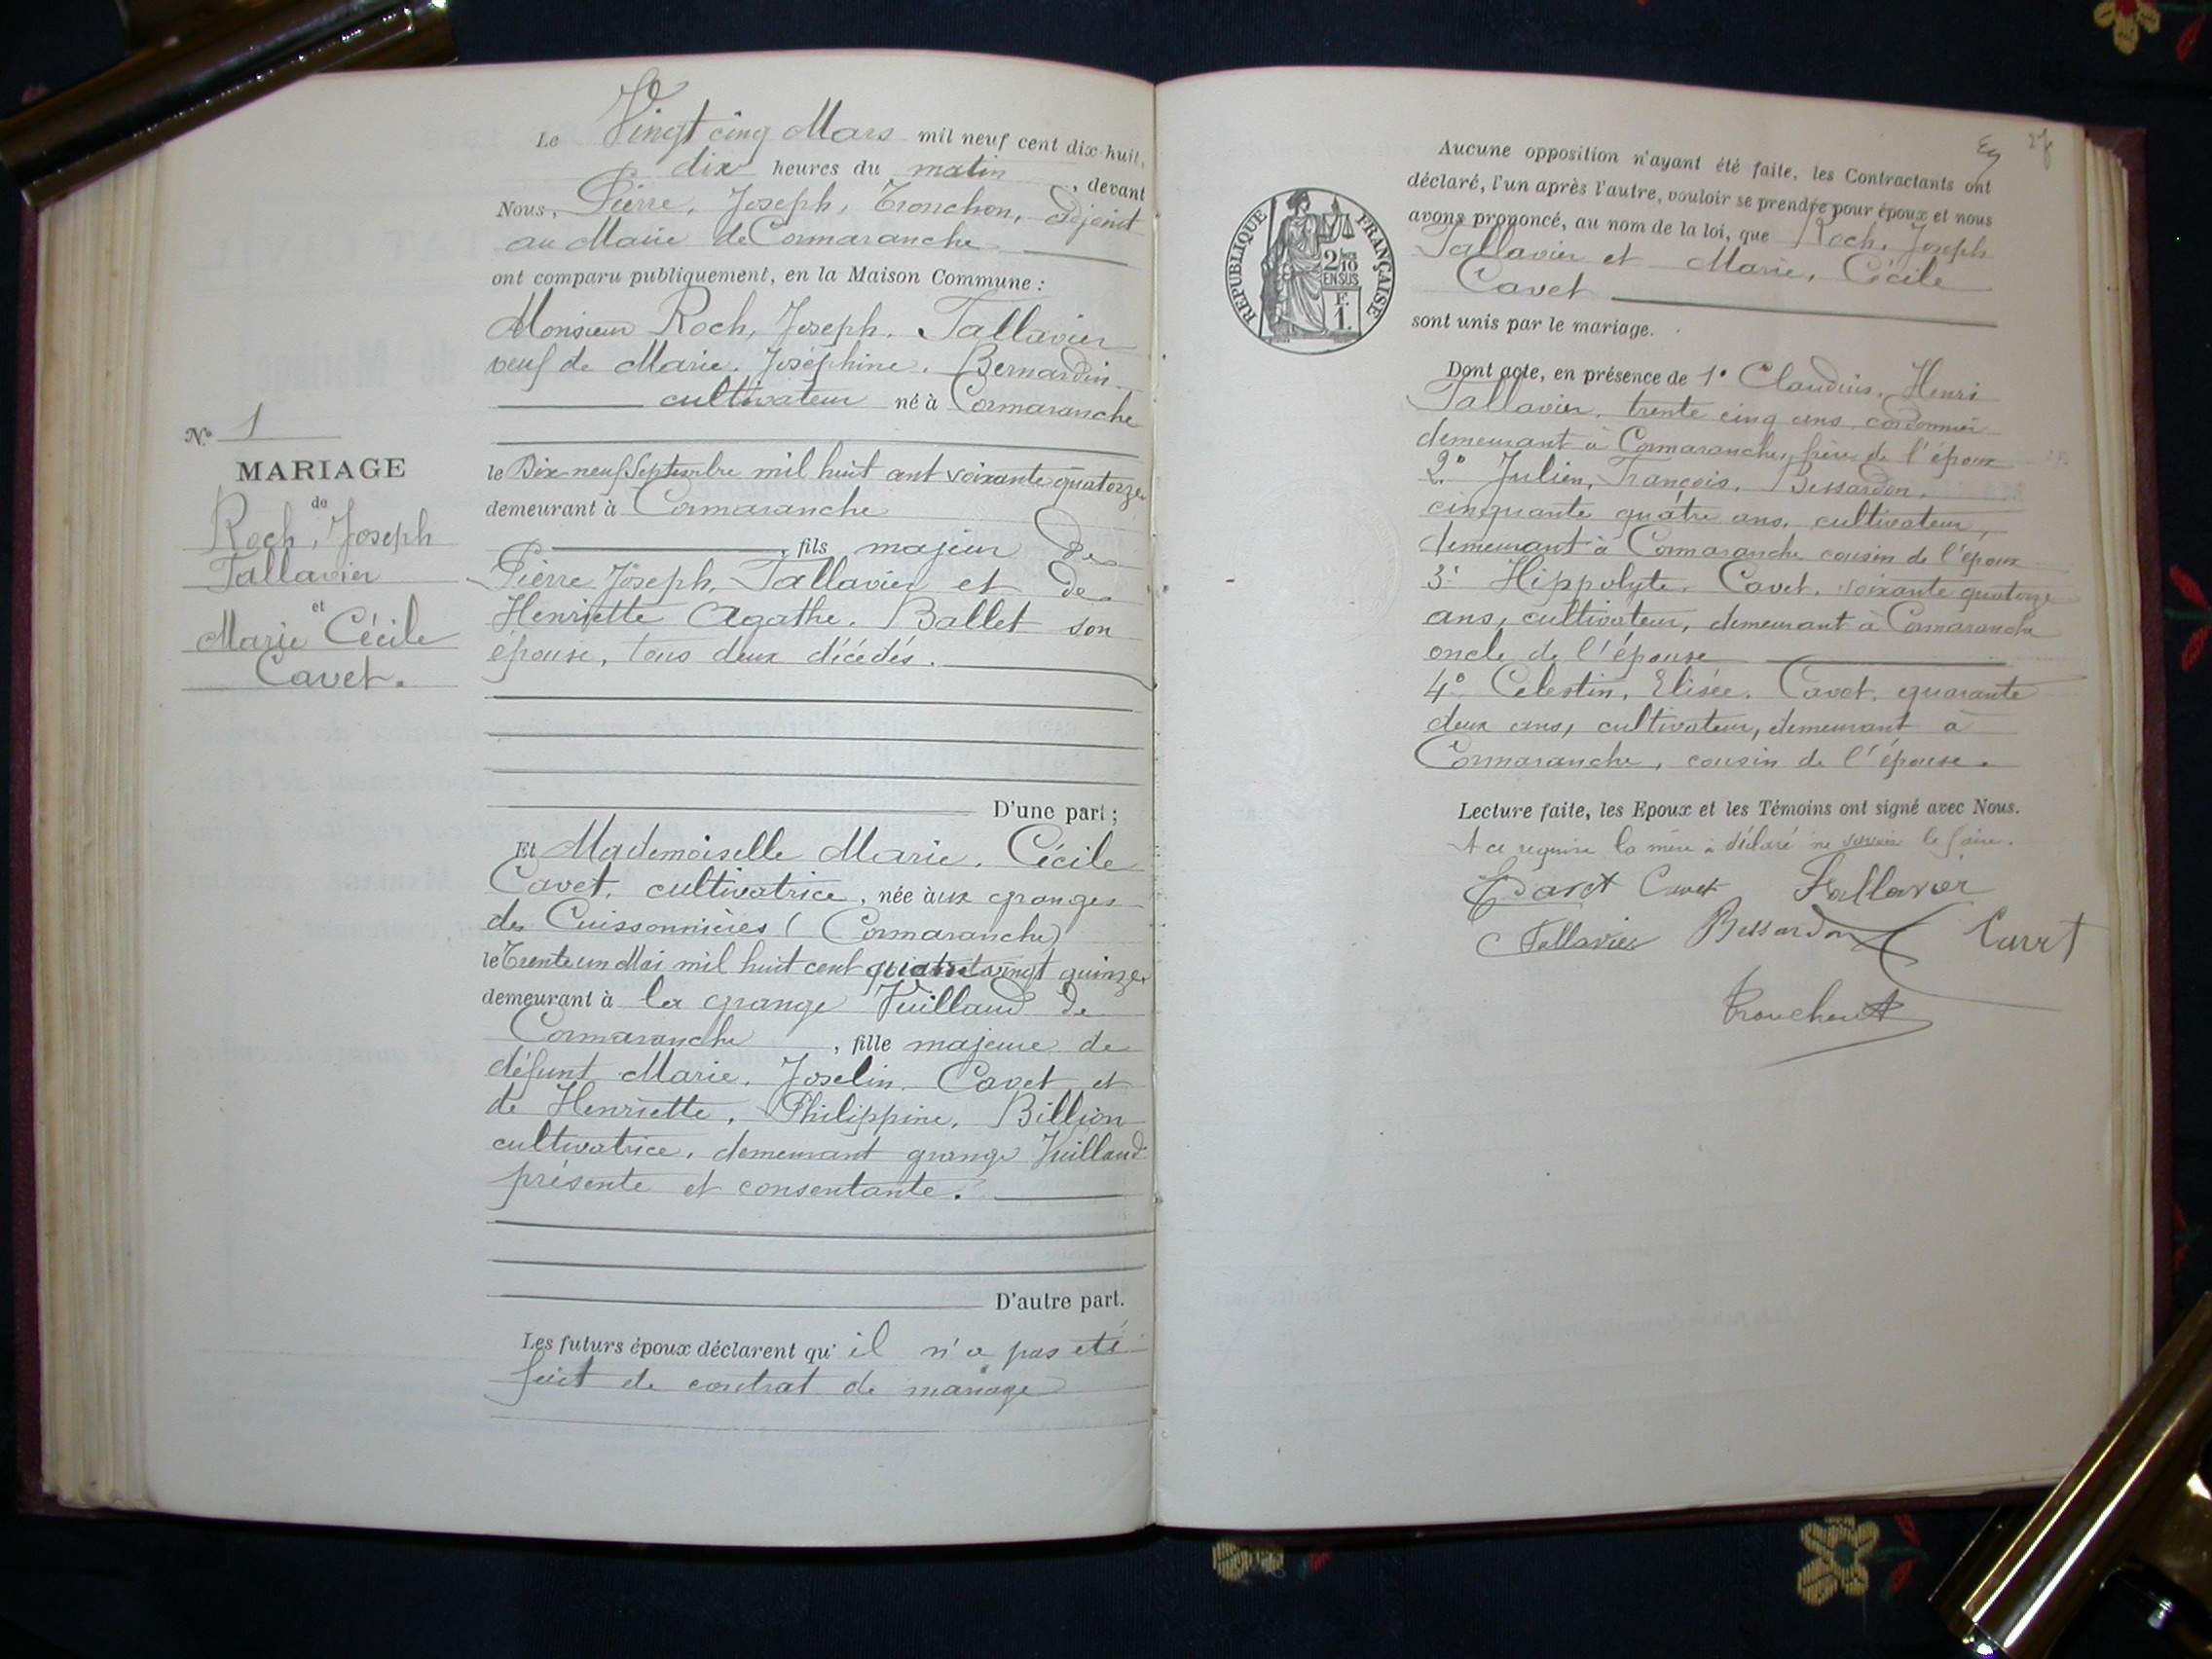 Le Vingt cinq Mars mil neuf cent dix-huit,
dix heures du matin, devant
Nous, Pierre, Joseph, Tronchon, Adjoint
au Maire de Cormaranche
ont comparu publiquement, en la Maison Commune :
Monsieur Roch, Joseph. Tallavier
veuf de Marie. Joséphine. Bernardin
cultivateur né à Cormaranche
le Dix-neuf Septembre mil huit cent soixante quatorze
demeurant à Cormaranche
, fils majeur de
Pierre Joseph. Tallavier et de
Henriette Agathe. Ballet son
épouse, tous deux décédés.
D'une part ;
N° 1
MARIAGE
de
Roch, Joseph
Tallavier
et
Marie Cécile
Cavet.
Et Mademoiselle Marie. Cécile
Cavet, cultivatrice, née aux granges
des Cuissonnières (Cormaranche)
le Trente un Mai mil huit cent quatre vingt quinze
demeurant à la grange Vuilland de
Cormaranche, fille majeure de
défunt Marie. Joselin. Cavet et
de Henriette, Philippine, Billion
cultivatrice, demeurant grange Vuilland
présente et consentante.
D'autre part.
Les futurs époux déclarent qu' il n'a pas été
fait de contrat de mariage
Aucune opposition n'ayant été faite, les Contractants ont
déclaré, l'un après l'autre, vouloir se prendre pour époux et nous
avons prononcé, au nom de la loi, que Roch. Joseph
Tallavier et Marie, Cécile
Cavet
sont unis par le mariage.
RÉPUBLIQUE FRANÇAISE
2/10
EN SUS
F.
1.
Dont acte, en présence de 1° Claudius. Henri
Tallavier, trente cinq ans, cordonnier
demeurant à Cormaranche, frère de l'époux
2° Julien, François. Bessardon,
cinquante quatre ans, cultivateur,
demeurant à Cormaranche cousin de l'époux
3° Hippolyte. Cavet. soixante quatorze
ans, cultivateur, demeurant à Cormaranche
oncle de l'épouse
4° Célestin, Elisée. Cavet. quarante
deux ans, cultivateur, demeurant à
Cormaranche, cousin de l'épouse.
Lecture faite, les Epoux et les Témoins ont signé avec Nous.
A ce requise la mère a déclaré ne savoir le faire.
Cavet Cavet Tallavier
Tallavier Bessardon Cavet
Tronchon